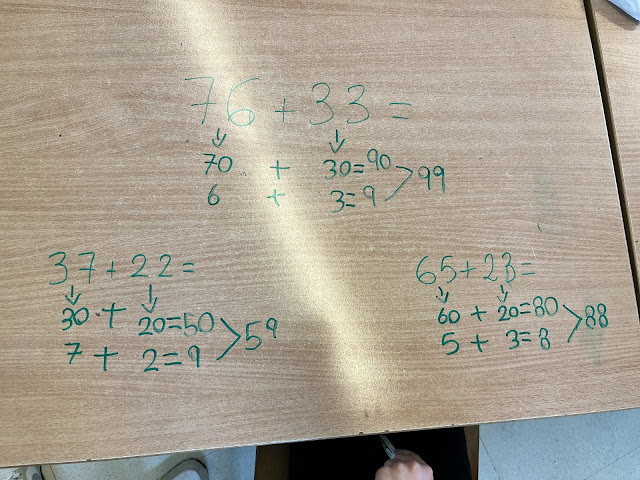 76 + 33 =
70 + 30 = 90
6 + 3 = 9 > 99
37 + 22 =
30 + 20 = 50
7 + 2 = 9 > 59
65 + 23 =
60 + 20 = 80
5 + 3 = 8 > 88